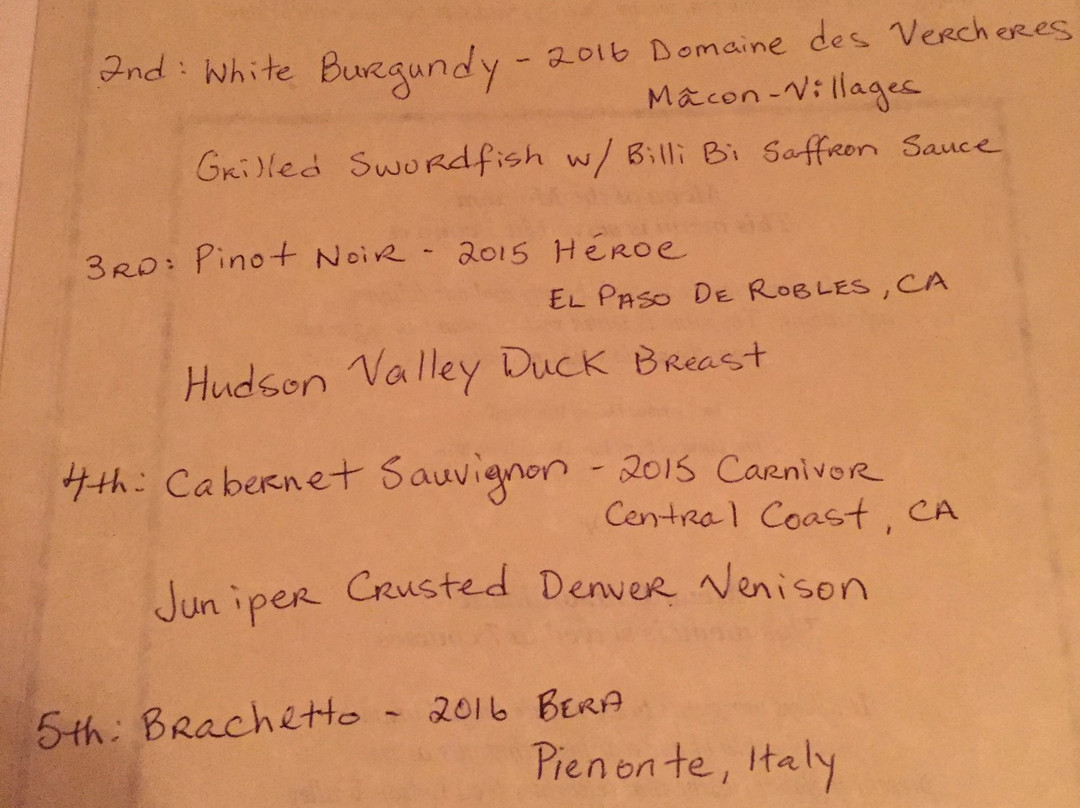 2nd: White Burgundy - 2016 Domaine des Vercheres
Mâcon-Villages
Grilled Swordfish w/ Billi Bi Saffron Sauce
3RD: Pinot Noir - 2015 Héroe
El Paso De Robles, CA
Hudson Valley Duck Breast
4th: Cabernet Sauvignon - 2015 Carnivor
Central Coast, CA
Juniper Crusted Denver Venison
5th: Brachetto - 2016 Bera
Pienonte, Italy